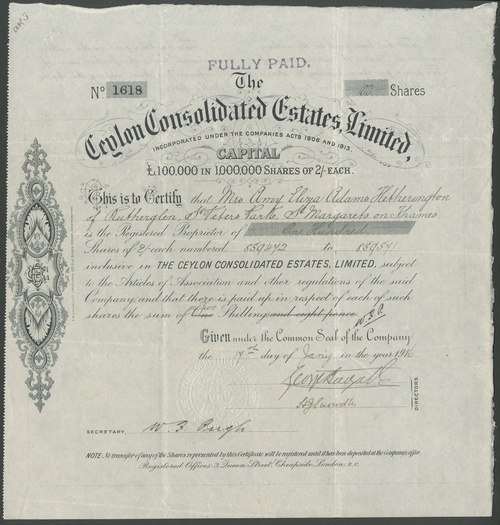 FULLY PAID.
The
No 1618
100 Shares
Ceylon Consolidated Estates, Limited,
INCORPORATED UNDER THE COMPANIES ACTS 1908 AND 1913.
CAPITAL
£100,000 IN 1,000,000 SHARES OF 2/- EACH.
This is to Certify that Mrs Amy Eliza Adams Hetherington
of Rutherglen, St Peters Park, St Margarets on Thames
is the Registered Proprietor of One Hundred
Shares of 2/- each numbered 859442 to 859541
inclusive in THE CEYLON CONSOLIDATED ESTATES, LIMITED, subject
to the Articles of Association and other regulations of the said
Company and that there is paid up in respect of each of such
shares the sum of Shilling and eight pence
Given under the Common Seal of the Company
the 17th day of Jany in the year 1916
DIRECTORS.
SECRETARY. W. F. Pugh
NOTE: No transfer of any of the Shares represented by this Certificate will be registered until it has been deposited at the Company's office.
Registered Offices 3 Queen Street, Cheapside, London. E.C.